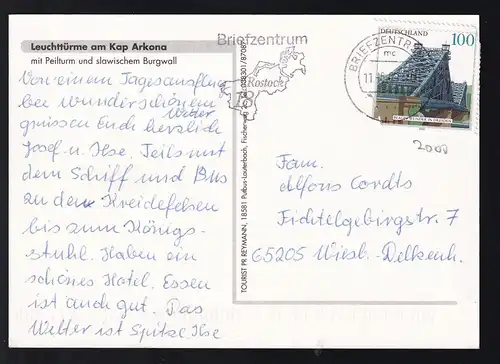 Leuchttürme am Kap Arkona
mit Peilturm und slawischem Burgwall
Von einem Tagesausflug
bei wunderschönem
Wetter
grüssen Euch herzlich
Josef u. Ilse. Teils mit
dem Schiff und Bus
zu den Kreidefelsen
bis zum Königs-
stuhl. Haben ein
schönes Hotel. Essen
ist auch gut. Das
Wetter ist Spitze Ilse
TOURIST PR REYMANN, 18581 Putbus-Lauterbach, Fischerweg
Briefzentrum
Rostock
BRIEFZENTR
mc
11
DEUTSCHLAND
100
2000
Fam.
Alfons Cordts
Fichtelgebirgstr. 7
65205 Wiesb.-Delkenh.